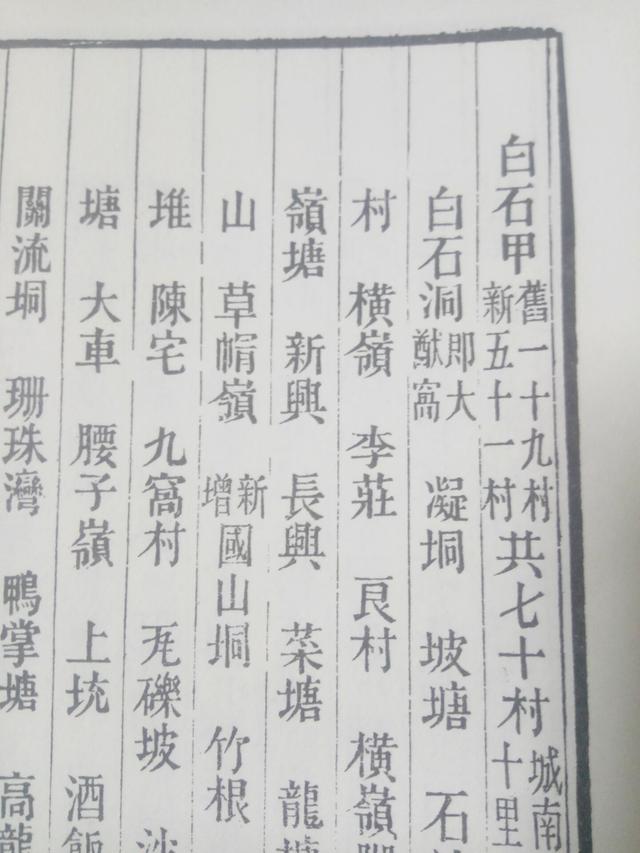 白石甲舊一十九村新五十一村共七十村城南十里
白石洞即大猷窩 凝垌 坡塘 石
村 橫嶺 李莊 良村 橫嶺
嶺塘 新興 長興 菜塘 龍塘
山 草帽嶺 新增國山垌 竹根
堆 陳宅 九窩村 瓦礫坡 沙
塘 大車 腰子嶺 上坑 酒飯
關流垌 珊珠灣 鴨掌塘 高龍